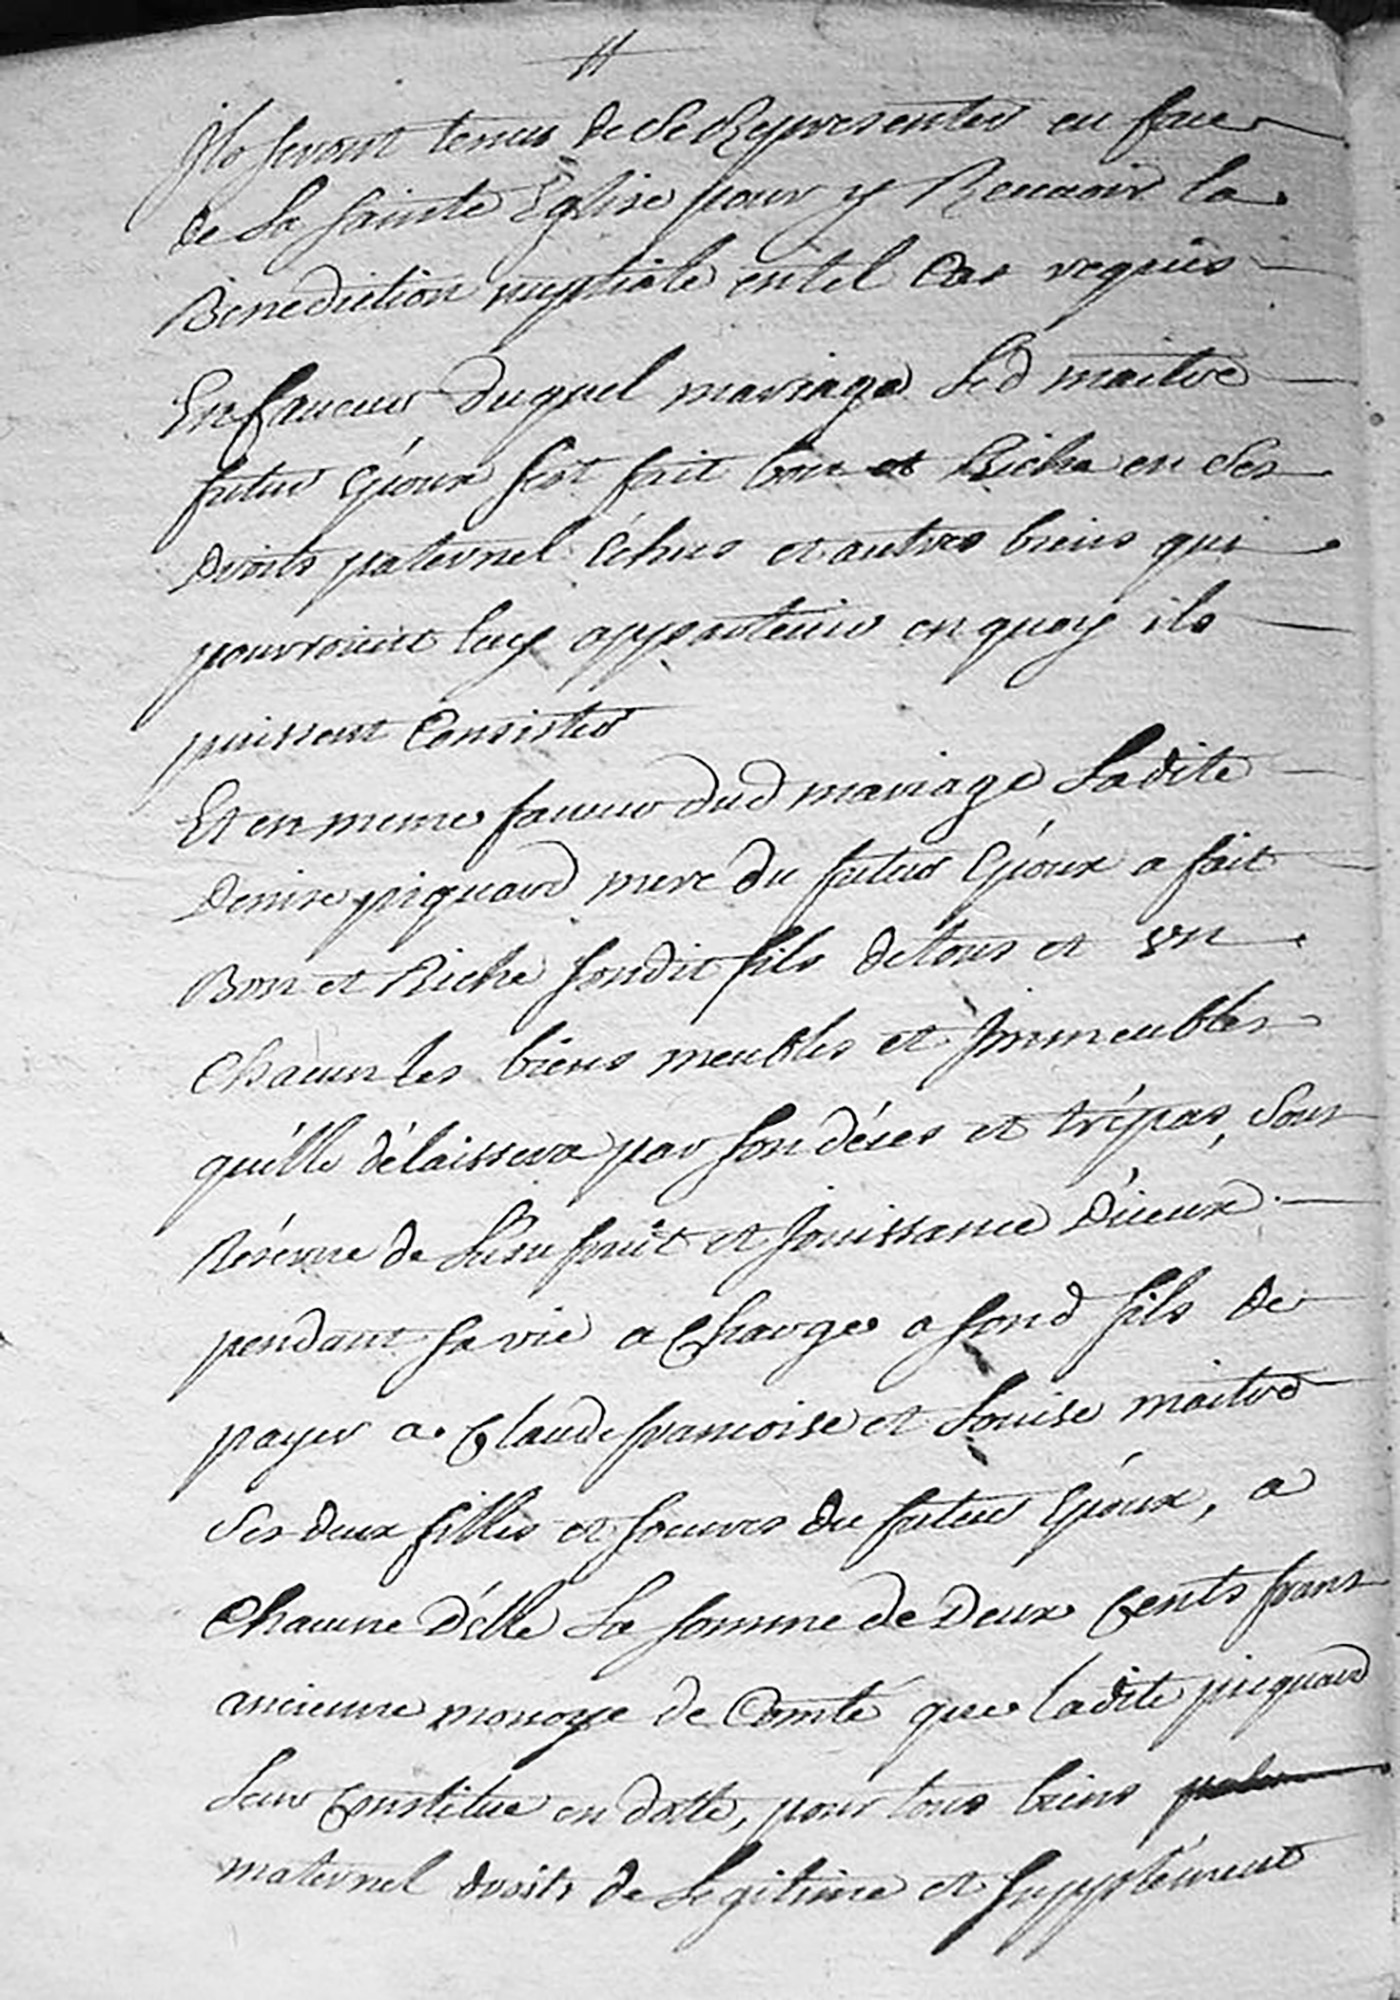 Ils seront tenus de se Representer en face
de La sainte Eglise pour y Recevoir la
Benediction nuptiale en tel Cas requis
En faveur duquel mariage led maitre
futur Epoux sest fait bon et Riche en ses
Droits paternel échus et autres biens qui
pourroient luy appartenir en quoy ils
puissent Consister
Et en meme faveur dud mariage Ladite
Denise piquard mere du futur Epoux a fait
Bon et Riche sondit fils de tous et un
Chacun les biens meubles et Immeubles
qu'elle délaissera par son déces et trépas, sous
Réserve de Lusufruit et Jouissance D'iceux
pendant sa vie a Charge a sond fils de
payer a Claude francoise et Louise maitre
ses deux filles et soeures du futur Epoux, a
Chacune D'elle La somme de Deux Cents frans
ancienne monoye de Comté que ladite picquard
Leur Constitue en dotte, pour tous biens
maternel droits de Legitime et Supplément